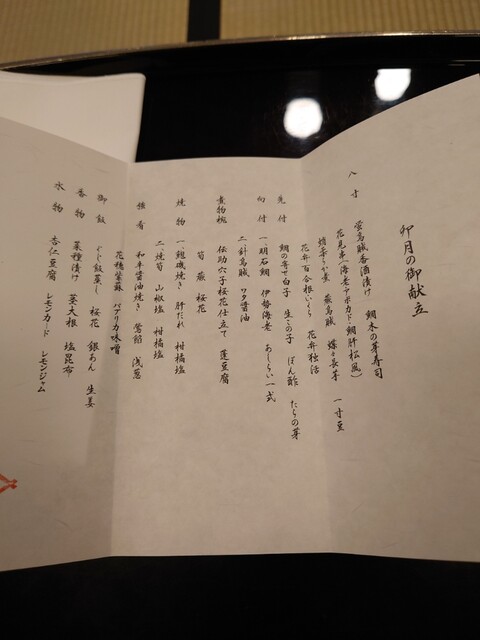 卯月の御献立
八寸
蛍烏賊香酒漬け 鯛木の芽寿司
花見串(海老アボカド 鯛肝松風)
蛸辛うか煮 飯烏賊 蝶々長芋 一寸豆
花弁百合根いくら 花弁独活
先付 鯛の寄せ白子 生このこ ぽん酢 たらの芽
向付 一、明石鯛 伊勢海老 あしらい一式
二、針烏賊 ワタ醤油
煮物椀 伝助穴子桜花仕立て 蓬豆腐
筍 蕨 桜花
焼物 一、鱒磯焼き 肝だれ 柑橘塩
二、焼筍 山椒塩 柑橘塩
強肴 和牛醤油焼き 鶯餡 浅葱
花穂紫蘇 パプリカ味噌
御飯 ぐじ飯蒸し 桜花 銀あん 生姜
香物 菜種漬け 葉大根 塩昆布
水物 杏仁豆腐 レモンカード レモンジャム